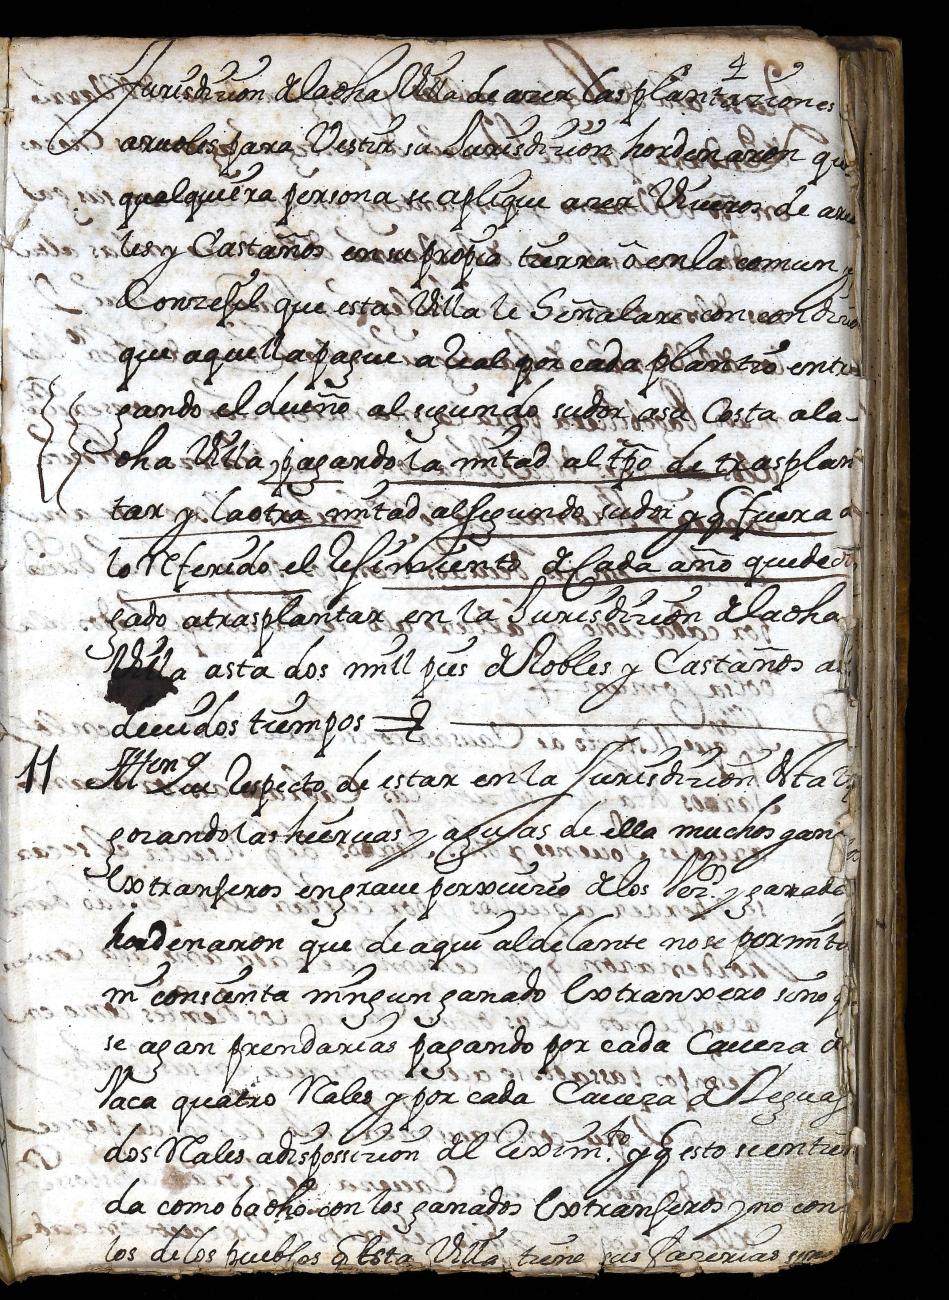 4
Jurisdizion de la dha Villa de azer las plantaziones
aruoles para Vestir su Jurisdizion hordenaron que
qualquiera persona se aplique a zer Viueros de aruo
les y Castaños en su propia tierra ô en la comun y
Conzejil que esta Villa le Señalare con condizio
que aquella pague a Real por cada plantio entre
gando el dueño al segundo sudor a su Costa a la
dha Villa pagando la mitad al tpo de trasplan
tar y la otra mitad al segundo sudor y q fuera d
lo Referido el Rejimiento de Cada año quede
gado a trasplantar en la Jurisdizion de la dha
Villa asta dos mill pies de Robles y Castaños a
deuidos tiempos
11 Itten por Respecto de estar en la Jurisdizion desta
gozando las hieruas y aguas de ella muchos gana
Extranjeros en graue perxuizio de los Vez.os y ganado
hordenaron que de aqui al delante no se permita
ni consienta ningun ganado Extranxero sino q
se agan prendarias pagando por cada Caueza de
Vaca quatro Rales y por cada Caueza de Yeguas
dos Rales a disposizion del Rexim.to y q esto se entien
da como ba dho con los ganados Extranjeros y no con
los de los pueblos q Esta Villa tiene sus fazerias